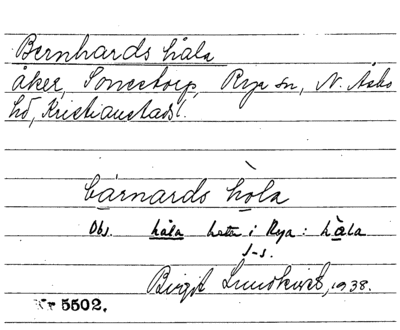 Bernhards håla
åker, Sonestorp, Rya sn, N. Åsbo
hd, Kristianstads l.
bárnards hòla
Obs. håla heter i Rya: hàla
J-s.
Birgit Lundkvist, 1938.
Nr 5502.